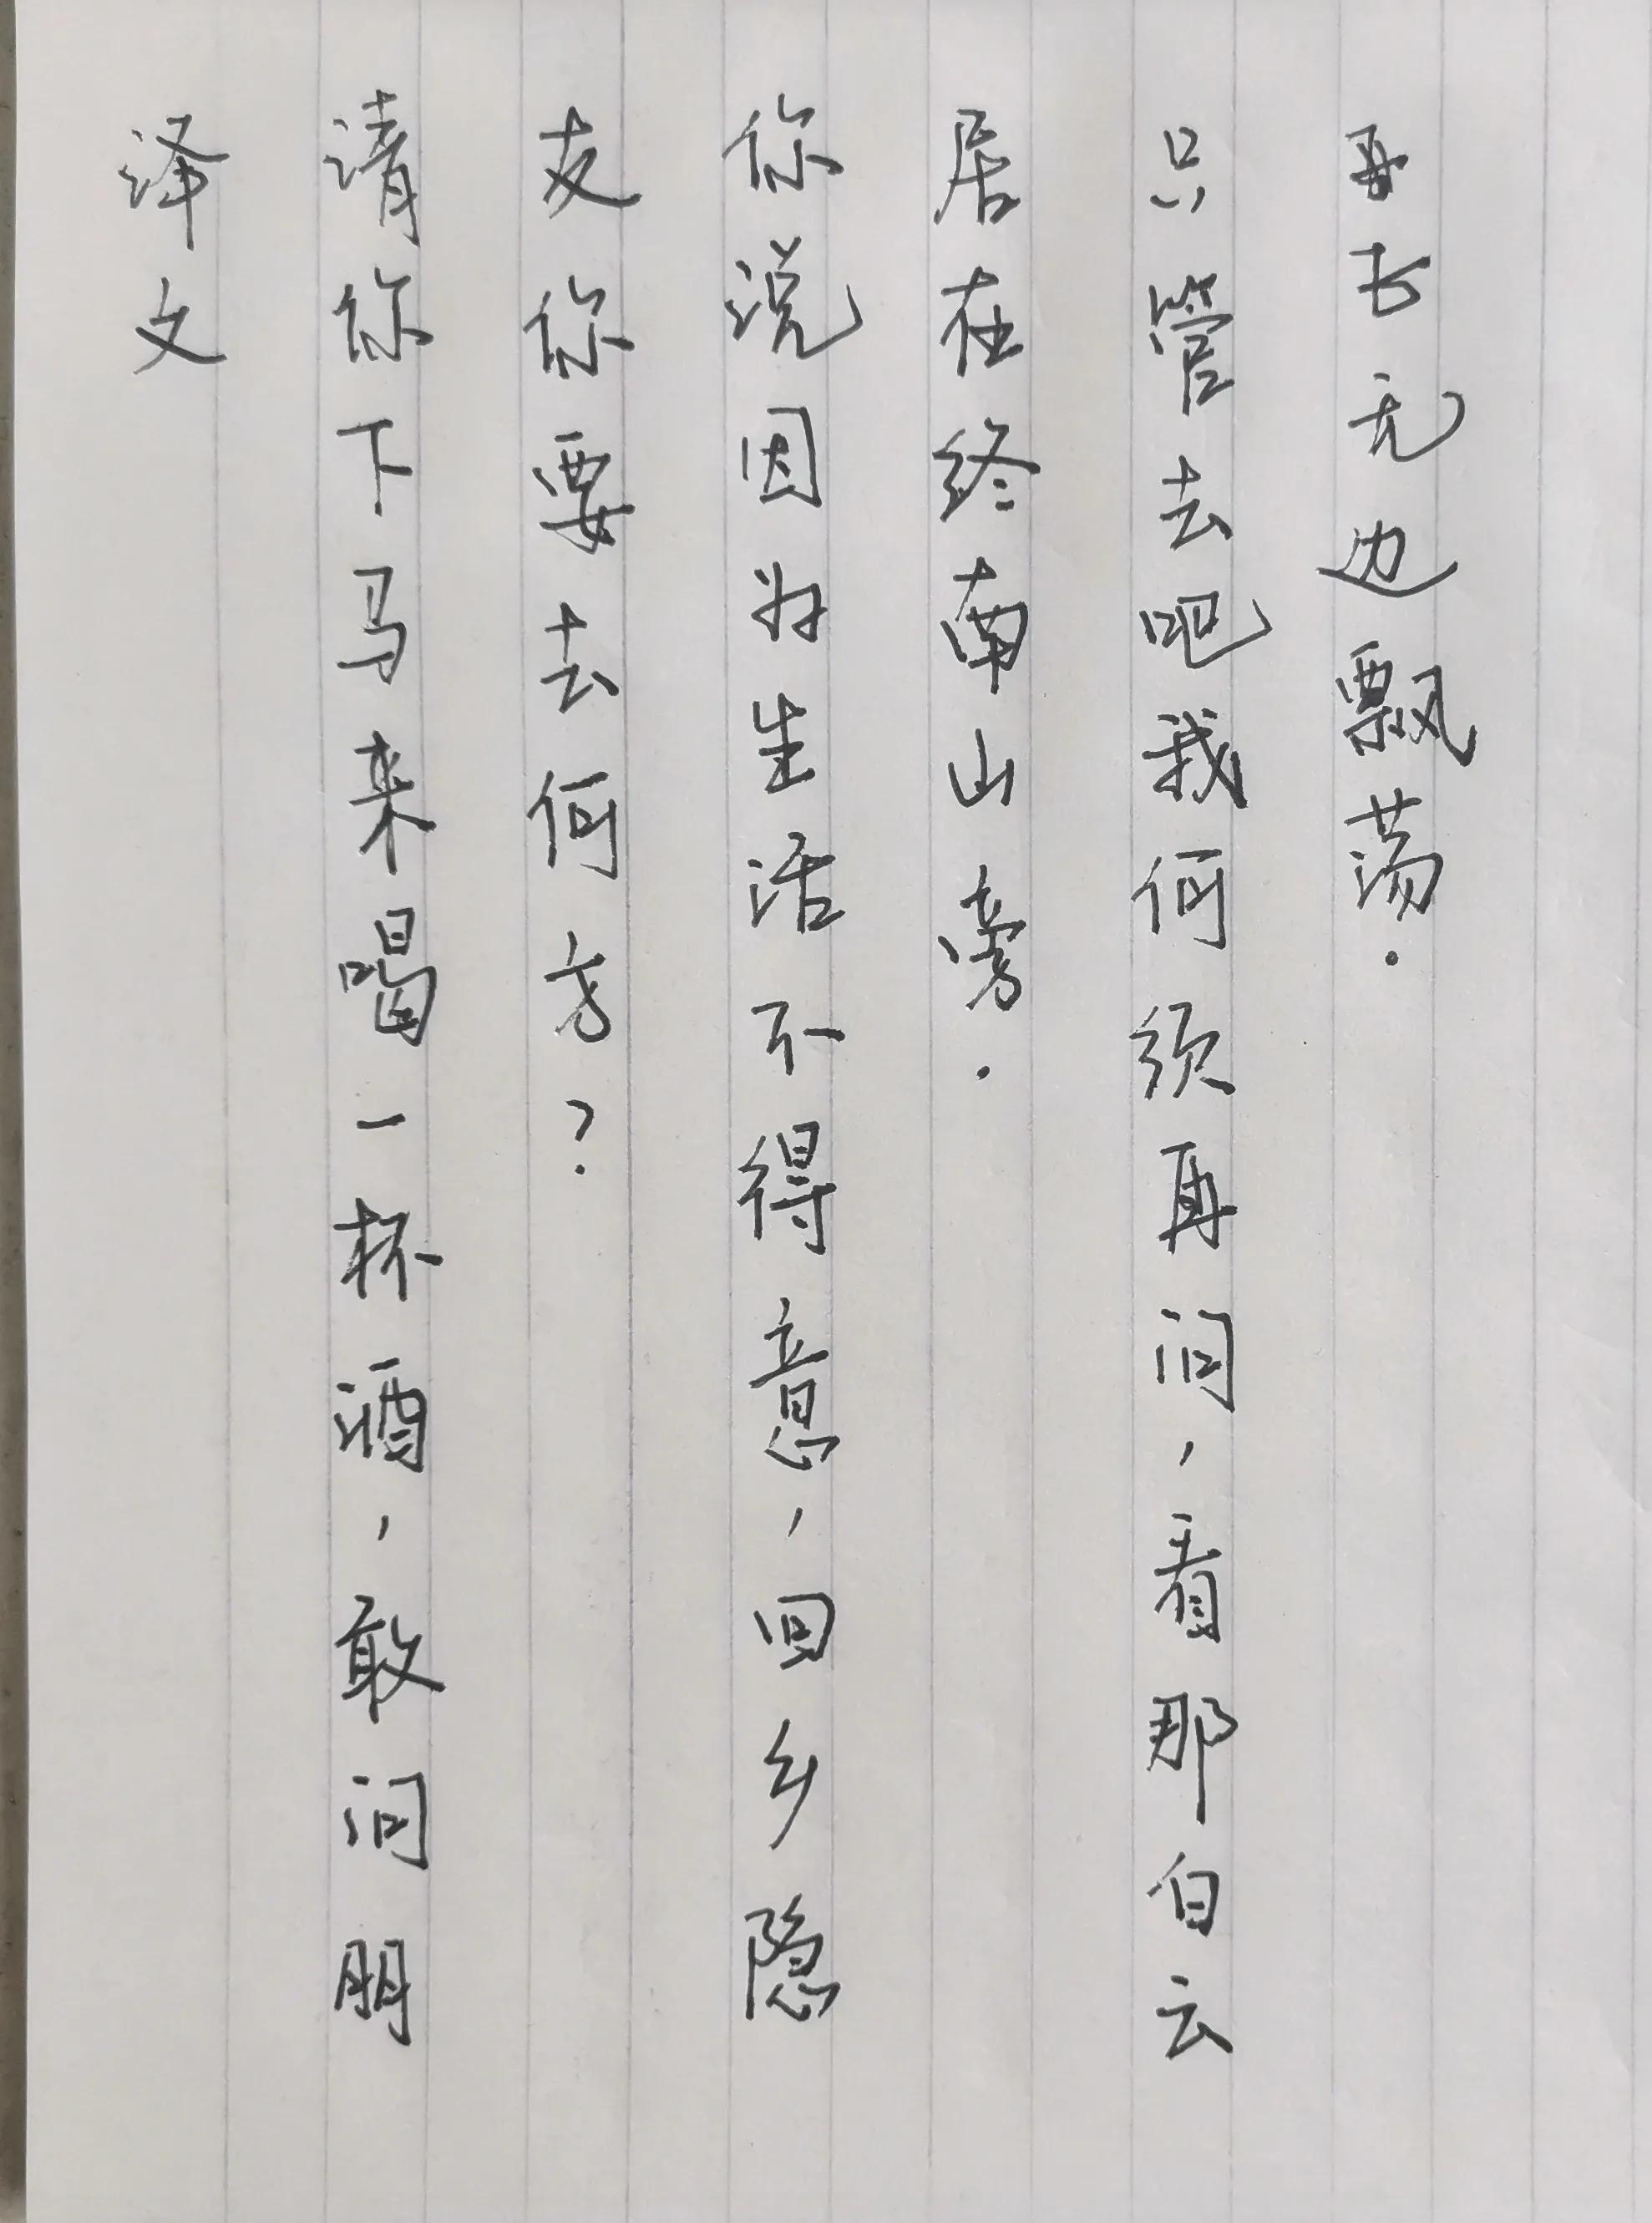 译文
请你下马来喝一杯酒，敢问朋
友你要去何方？
你说因为生活不得意，回乡隐
居在终南山旁.
只管去吧我何须再问，看那白云
古无边飘荡.